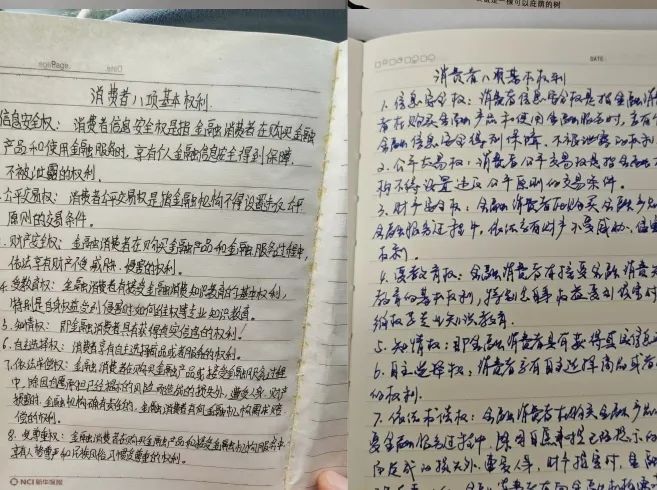 一棵可以庇荫的树
Page
Date
消费者八项基本权利
信息安全权：消费者信息安全权是指金融消费者在购买金融
产品和使用金融服务时，享有个人金融信息安全得到保障，
不被泄露的权利。
公平交易权：消费者公平交易权是指金融机构不得设置违反公平
原则的交易条件。
财产安全权：金融消费者在购买金融产品和金融服务过程中，
依法享有财产不受威胁、侵害的权利。
4. 受教育权：金融消费者有接受金融消费知识教育的基本权利，
特别是自身权益受到侵害时如何维权等专业知识教育。
5. 知情权：即金融消费者具有获得真实信息的权利！
6. 自主选择权：消费者享有自主选择商品或者服务的权利。
7. 依法求偿权：金融消费者在购买金融产品或接受金融服务过程
中，除因自愿承担已经提示的风险而造成的损失外，遭受人身、财产
损害时，金融机构确有责任的，金融消费者有向金融机构要求赔
偿的权利。
8. 受尊重权：金融消费者在购买金融产品和接受金融机构服务中
享有人格尊严和民族风俗习惯受尊重的权利。
NCI 新华保险
DATE
消费者八项基本权利
1. 信息安全权：消费者信息安全权是指金融消
者在购买金融产品和使用金融服务时，享有个
金融信息安全得到保障，不被泄露的权利
2. 公平交易权：消费者公平交易权是指金融
构不得设置违反公平原则的交易条件。
3. 财产安全权：金融消费者在购买金融产品
金融服务过程中，依法享有财产不受威胁、侵害
权利。
4. 受教育权：金融消费者有接受金融消费
教育的基本权利，特别是自身权益受到侵害时
维权等专业知识教育。
5. 知情权：即金融消费者具有获得真实信息
6. 自主选择权：消费者享有自主选择商品或者
的权利。
7. 依法求偿权：金融消费者在购买金融产品
受金融服务过程中，除因自愿承担已经提示的
而造成的损失外，遭受人身、财产损害时，金融